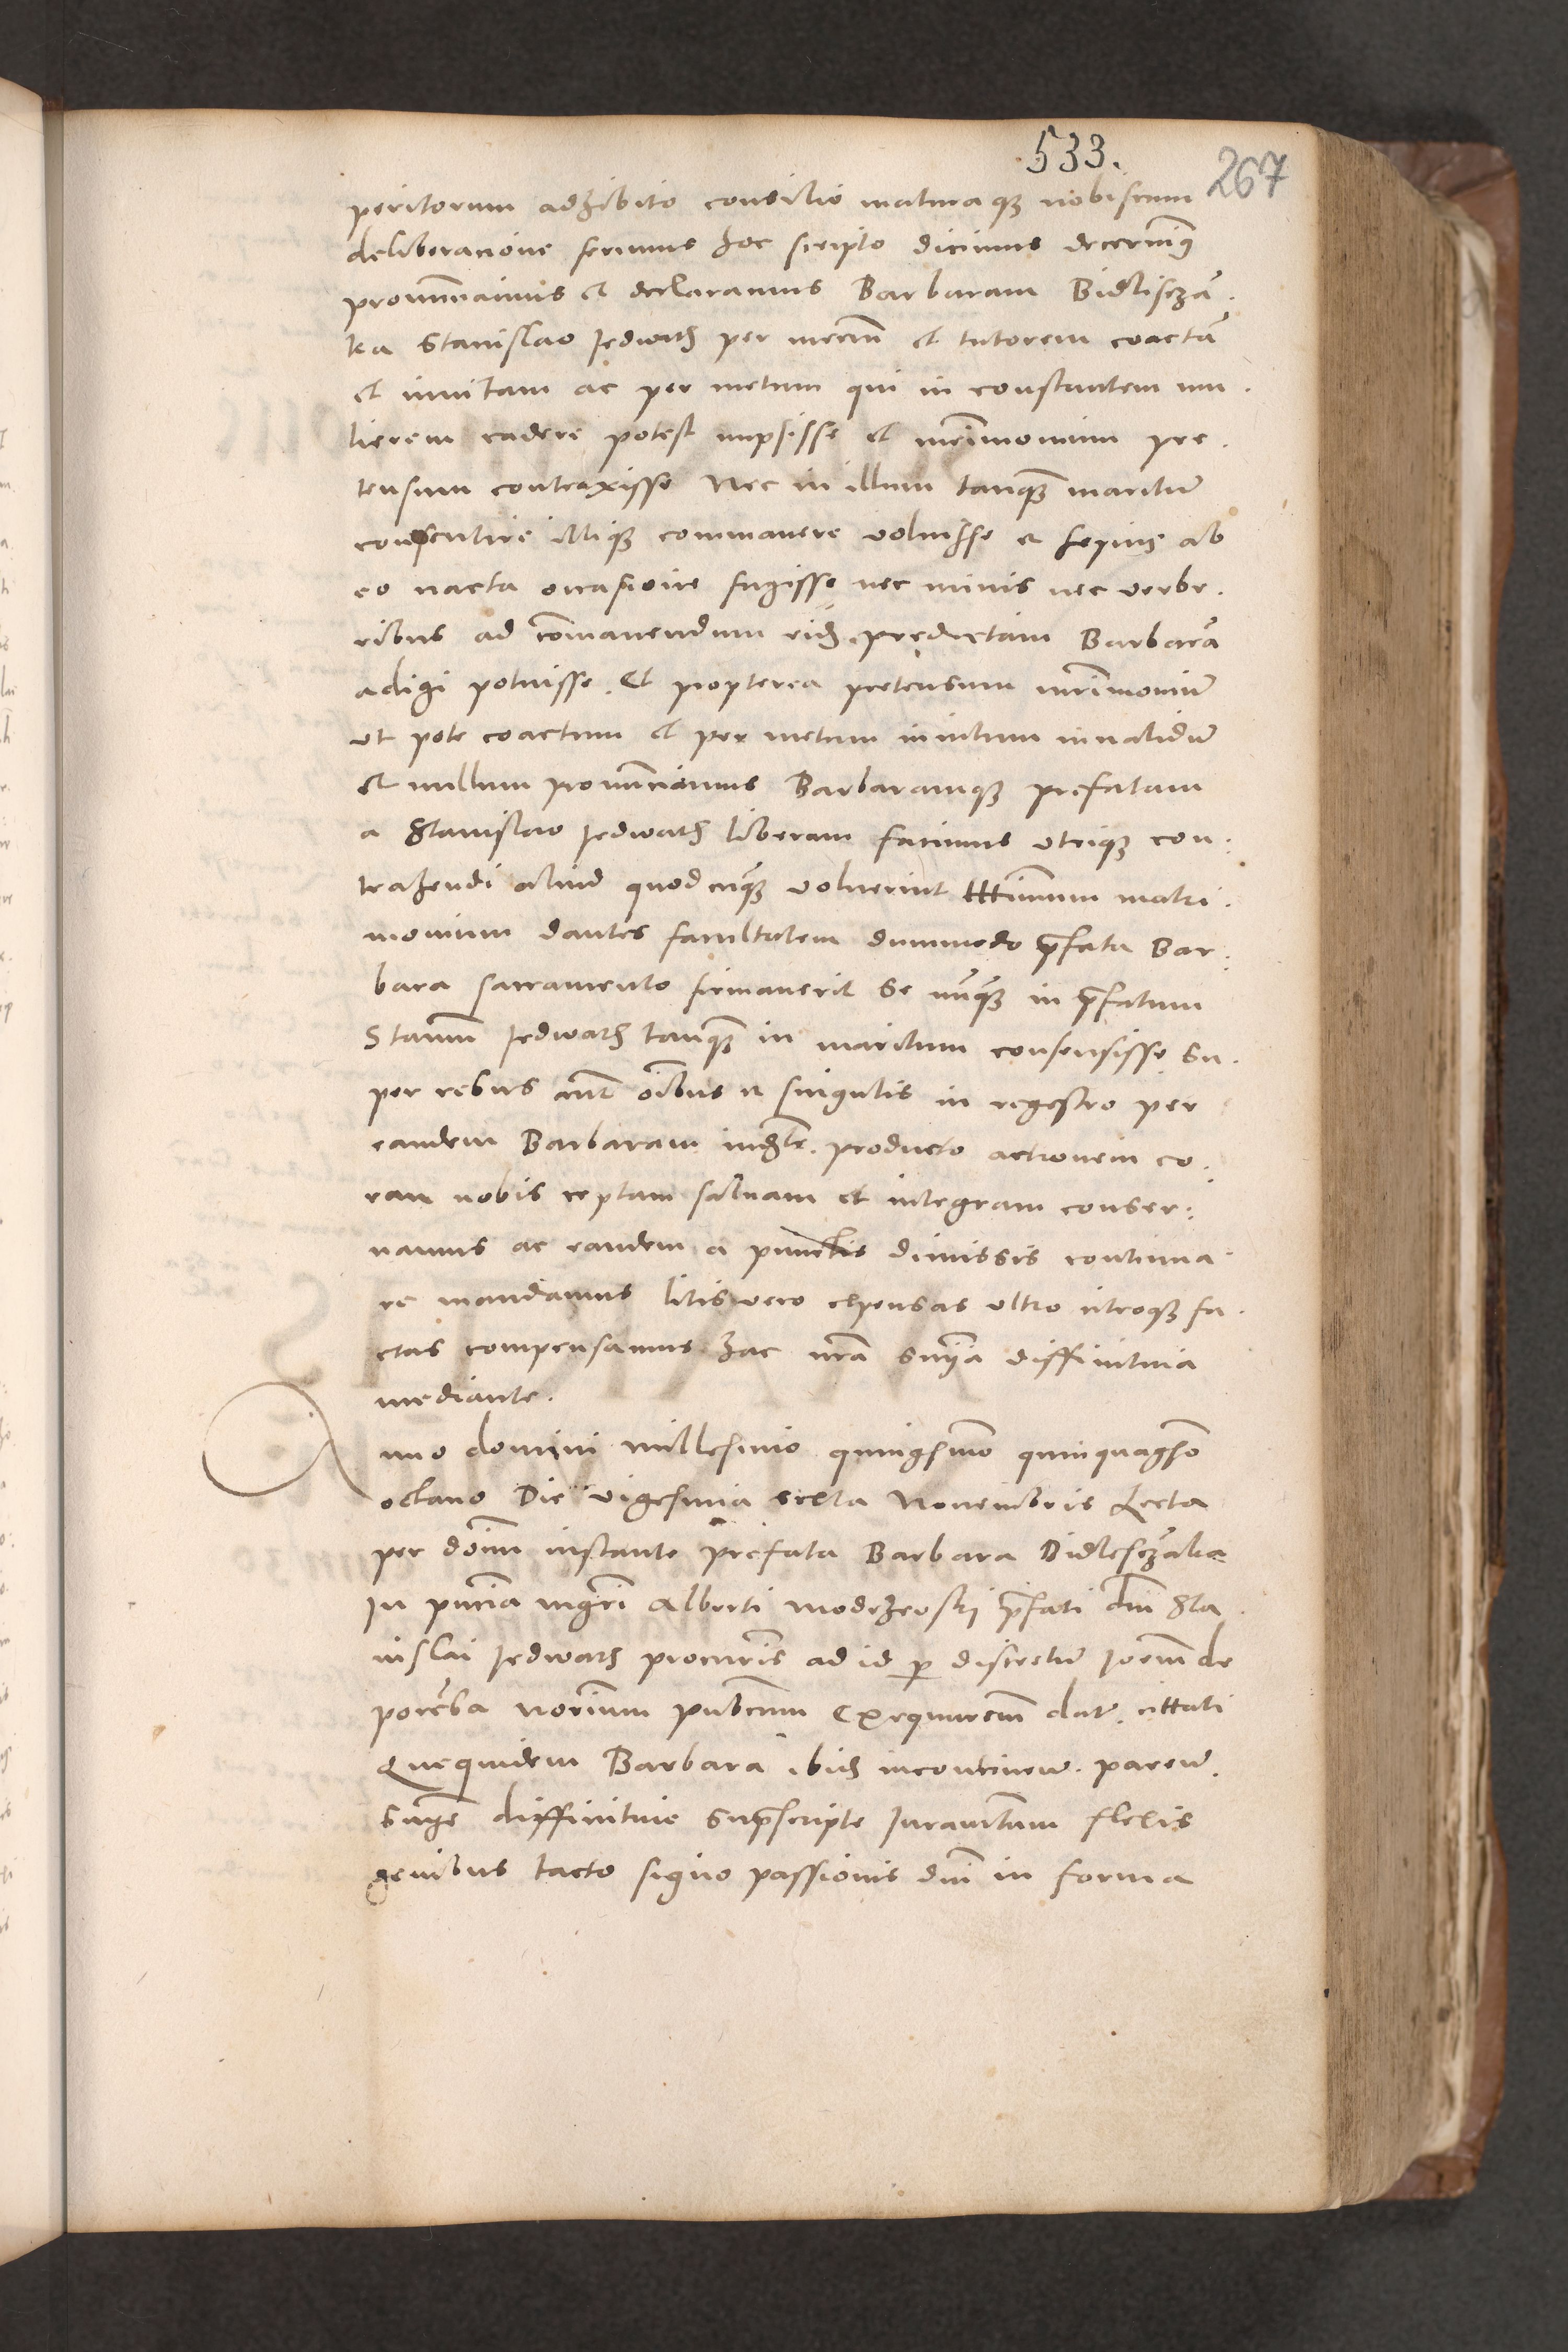 533.
267
peritorum adhibito consilio maturaq3 nobiscum
deliberacione ferimus hoc scripto dicimus decernim9
pronunciamus et declaramus Barbaram Bidlisczā.
ka Stanislao Jedwath per metum et tutorem coactā
et inuitam ac per metum qui in constantem mu.
lierem cadere potest nupsisse et mrimonium pre.
tensum contraxisse Nec in illum tanq3 maritū
consentire illiq3 commanere voluisse et sepius ab
eo nacta occasione fugisse nec minis nec verbe.
ribus ad commanendum eid. predictam Barbarā
adigi potuisse. Et propterea pretensum mrimoniū
ut pote coactum et per metum initum inualidū
et nullum pronunciamus Barbaramq3 prefatam
a Stanislao Jedwath liberam facimus vtriq3 con:
trahendi aliud quodcuq3 voluerint ttimum matri.
monium dantes facultatem dummodo pfata Bar:
bara sacramento firmauerit se nunq3 in pfatum
Stanm Jedwath tanq3 in maritum consensisse. Su.
per rebus aut oibus et singulis in regestro per
eandem Barbaram iudte. producto actionem co.
ram nobis ceptam saluam et integram conser:
uamus ac eandem a punctis dimissis continua.
re mandamus litis vero expensas vltro citroq3 fa.
ctas compensamus hac nra snia diffinitiua
mediante.
Anno domini millesimo quingsimo quinquagso
octauo Die vigesima sexta Nouembris Lecta
per dominum instante prefata Barbara Bidlesczāka
In pntia mgri Alberti Modrzeoski pfati dni Sta.
nislai Jedwath procuris ad id p discretū Joem de
poremba norium publicum Exequutem datur. cittati
Quequidem Barbara ibid incontinen. paren.
Snie diffinitiue Suprascripte Juramtum flexis
genibus tacto signo passionis dni in forma